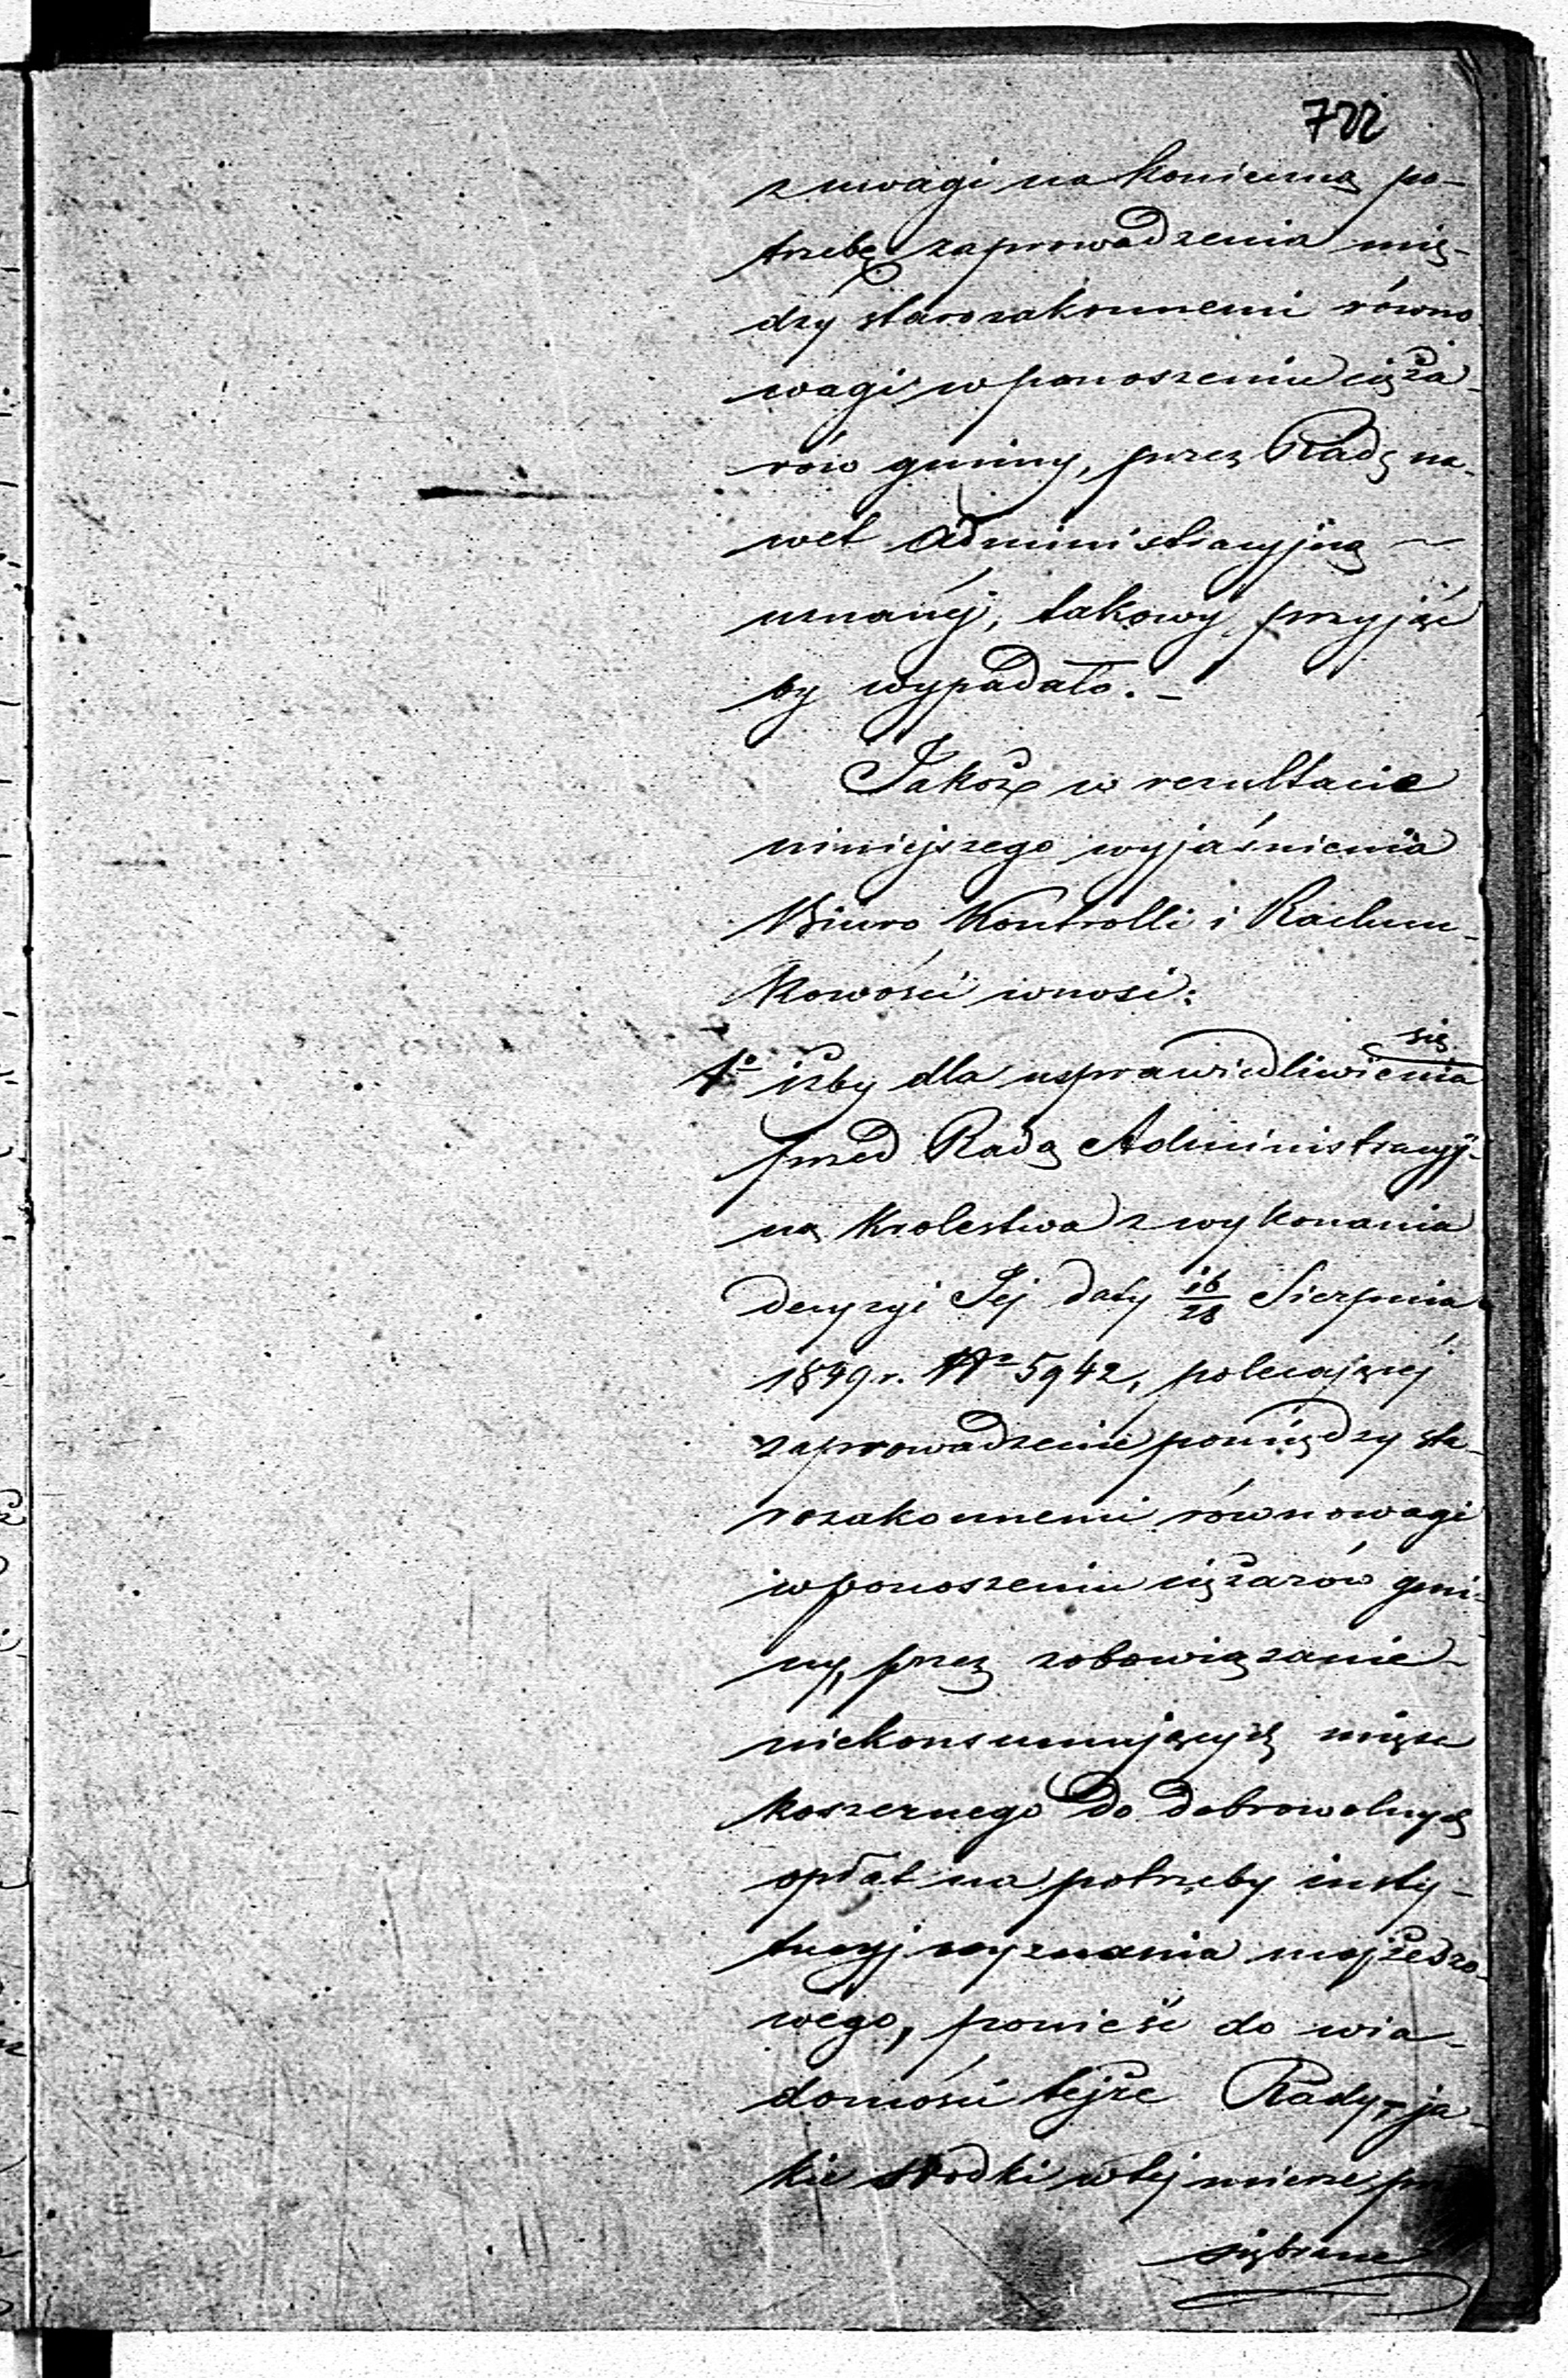 722
z uwagi na konieczną po-
trzebę zaprowadzenia mię-
dzy starozakonnemi równo
wagi w ponoszeniu cięża-
rów gminy, przez Radę na-
wet Administracyjną
uznanéj, takowy przyjąć
by wypadało.-
Jakoż w rezultacie
niniejszego wyjaśnienia
Biuro Kontrolli i Rachun-
kowości wnosi:
się
1o iżby dla usprawiedliwienia
przed Radą Administracyj-
ną Krolestwa z wykonania
decyzyi Jej daty 16/28 Sierpnia
1849 r. No 5942, polecającéj
zaprowadzenie pomiędzy sta-
rozakonnemi równowagi
w ponoszeniu ciężarów gmi-
ny, przez zobowiązanie
niekonsumujących mięsa
koszernego do dobrowolnych
opłat na potrzeby insty-
tucyj wyznania mojżeszo-
wego, ponieść do wia-
domości tejże Rady, ja-
kie środki w tej mierze prze
sięzbrane